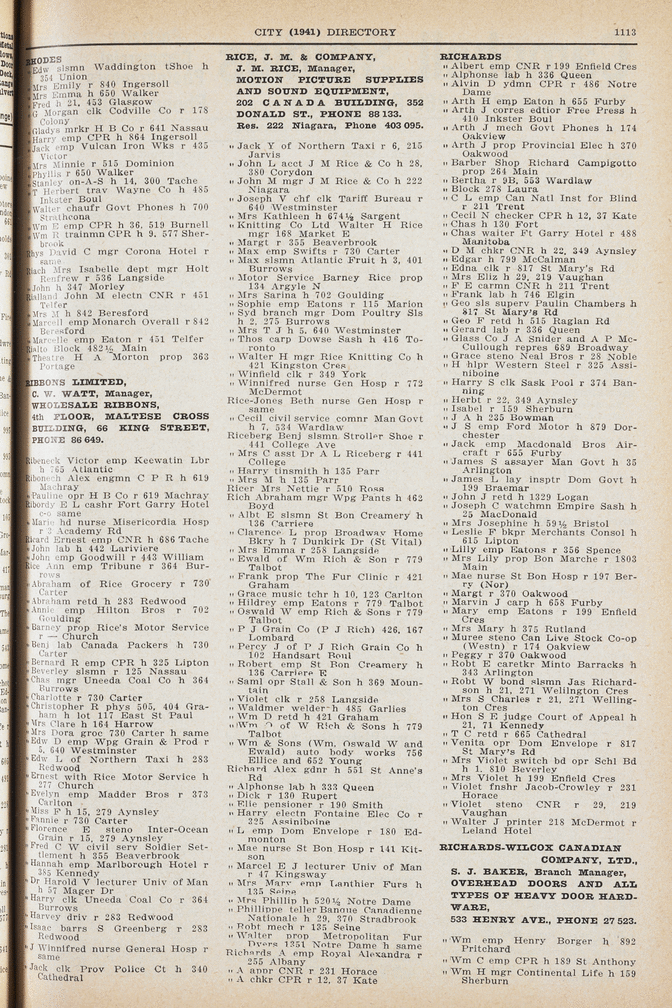 CITY (1941) DIRECTORY
1113
RHODES
" Edw slsmn Waddington tShoe h
354 Union
" Mrs Emily r 840 Ingersoll
" Mrs Emma h 650 Walker
" Fred h 21, 453 Glasgow
" G Morgan clk Codville Co r 178
Colony
" Gladys mrkr H B Co r 641 Nassau
" Harry emp CPR h 864 Ingersoll
" Jack emp Vulcan Iron Wks r 435
Victor
" Mrs Minnie r 515 Dominion
" Phyllis r 650 Walker
" Stanley on-A-S h 14, 300 Tache
" T Herbert trav Wayne Co h 485
Inkster Boul
" Walter chaufr Govt Phones h 700
Strathcona
" Wm E emp CPR h 36, 519 Burnell
" Wm R trainmn CPR h 9, 577 Sher-
brook
Rhys David C mgr Corona Hotel r
same
Riach Mrs Isabelle dept mgr Holt
Renfrew r 536 Langside
" John h 347 Morley
Rialland John M electn CNR r 451
Telfer
" Mrs M h 842 Beresford
" Marcell emp Monarch Overall r 842
Beresford
" Marcelle emp Eaton r 451 Telfer
Rialto Block 482½ Main
" Theatre H A Morton prop 363
Portage
RIBBONS LIMITED,
C. W. WATT, Manager,
WHOLESALE RIBBONS,
4th FLOOR, MALTESE CROSS
BUILDING, 66 KING STREET,
PHONE 86 649.
Ribeneck Victor emp Keewatin Lbr
h 765 Atlantic
Ribonech Alex engmn C P R h 619
Machray
" Pauline opr H B Co r 619 Machray
Ribordy E L cashr Fort Garry Hotel
c-o same
" Marie hd nurse Misericordia Hosp
r 2 Academy Rd
Ricard Ernest emp CNR h 686 Tache
" John lab h 442 Lariviere
" John emp Goodwill r 443 William
Rice Ann emp Tribune r 364 Bur-
rows
" Abraham of Rice Grocery r 730
Carter
" Abraham retd h 283 Redwood
" Annie emp Hilton Bros r 702
Goulding
" Barney prop Rice's Motor Service
r — Church
" Benj lab Canada Packers h 730
Carter
" Bernard R emp CPR h 325 Lipton
" Beverley slsmn r 125 Nassau
" Chas mgr Uneeda Coal Co h 364
Burrows
" Charlotte r 730 Carter
" Christopher R phys 505, 404 Gra-
ham h lot 117 East St Paul
" Mrs Clare h 164 Harrow
" Mrs Dora groc 730 Carter h same
" Edw D emp Wpg Grain & Prod r
5, 640 Westminster
" Edw L of Northern Taxi h 283
Redwood
" Ernest with Rice Motor Service h
277 Church
" Evelyn emp Madder Bros r 373
Carlton
" Miss F h 15, 279 Aynsley
" Fannie r 730 Carter
" Florence E steno Inter-Ocean
Grain r 15, 279 Aynsley
" Fred C W civil serv Soldier Set-
tlement h 355 Beaverbrook
" Hannah emp Marlborough Hotel r
385 Kennedy
" Dr Harold V lecturer Univ of Man
h 57 Mager Dr
" Harry clk Uneeda Coal Co r 364
Burrows
" Harvey driv r 283 Redwood
" Isaac barrs S Greenberg r 283
Redwood
" J Winnifred nurse General Hosp r
same
" Jack clk Prov Police Ct h 340
Cathedral
RICE, J. M. & COMPANY,
J. M. RICE, Manager,
MOTION PICTURE SUPPLIES
AND SOUND EQUIPMENT,
202 CANADA BUILDING, 352
DONALD ST., PHONE 88 133.
Res. 222 Niagara, Phone 403 095.
" Jack Y of Northern Taxi r 6, 215
Jarvis
" John L acct J M Rice & Co h 28,
380 Corydon
" John M mgr J M Rice & Co h 222
Niagara
" Joseph W chf clk Tariff Bureau r
640 Westminster
" Mrs Kathleen h 674½ Sargent
" Knitting Co Ltd Walter H Rice
mgr 168 Market E
" Margt r 355 Beaverbrook
" Max emp Swifts r 730 Carter
" Max slsmn Atlantic Fruit h 3, 401
Burrows
" Motor Service Barney Rice prop
134 Argyle N
" Mrs Sarina h 702 Goulding
" Sophie emp Eatons r 115 Marion
" Syd branch mgr Dom Poultry Sls
h 2, 275 Burrows
" Mrs T J h 5, 640 Westminster
" Thos carp Dowse Sash h 416 To-
ronto
" Walter H mgr Rice Knitting Co h
421 Kingston Cres
" Winfield clk r 349 York
" Winnifred nurse Gen Hosp r 772
McDermot
Rice-Jones Beth nurse Gen Hosp r
same
" Cecil civil service comnr Man Govt
h 7, 534 Wardlaw
Riceberg Benj slsmn Stroller Shoe r
441 College Ave
" Mrs C asst Dr A L Riceberg r 441
College
" Harry tinsmith h 135 Parr
" Mrs M h 135 Parr
Ricer Mrs Nettie r 510 Ross
Rich Abraham mgr Wpg Pants h 462
Boyd
" Albt E slsmn St Bon Creamery h
136 Carriere
" Clarence L prop Broadway Home
Bkry h 7 Dunkirk Dr (St Vital)
" Mrs Emma r 258 Langside
" Ewald of Wm Rich & Son r 779
Talbot
" Frank prop The Fur Clinic r 421
Graham
" Grace music tchr h 10, 123 Carlton
" Hildrey emp Eatons r 779 Talbot
" Oswald W emp Rich & Sons r 779
Talbot
" P J Grain Co (P J Rich) 426, 167
Lombard
" Percy J of P J Rich Grain Co h
102 Handsart Boul
" Robert emp St Bon Creamery h
136 Carriere E
" Saml opr Stall & Son h 369 Moun-
tain
" Violet clk r 258 Langside
" Waldmer welder h 485 Garlies
" Wm D retd h 421 Graham
" Wm O of W Rich & Sons h 779
Talbot
" Wm & Sons (Wm, Oswald W and
Ewald) auto body works 756
Ellice and 652 Young
Richard Alex gdnr h 551 St Anne's
Rd
" Alphonse lab h 333 Queen
" Dick r 130 Rupert
" Elie pensioner r 190 Smith
" Harry electn Fontaine Elec Co r
225 Assiniboine
" L emp Dom Envelope r 180 Ed-
monton
" Mae nurse St Bon Hosp r 141 Kit-
son
" Marcel E J lecturer Univ of Man
r 47 Kingsway
" Mrs Mary emp Lanthier Furs h
135 Seine
" Mrs Phillip h 520½ Notre Dame
" Phillippe teller Banque Canadienne
Nationale h 29, 370 Stradbrook
" Robt mech r 135 Seine
" Walter prop Metropolitan Fur
Dyers 1351 Notre Dame h same
Richards A emp Royal Alexandra r
255 Albany
" A appr CNR r 231 Horace
" A chkr CPR r 12, 37 Kate
RICHARDS
" Albert emp CNR r 199 Enfield Cres
" Alphonse lab h 336 Queen
" Alvin D ydmn CPR r 486 Notre
Dame
" Arth H emp Eaton h 655 Furby
" Arth J corres edtior Free Press h
410 Inkster Boul
" Arth J mech Govt Phones h 174
Oakview
" Arth J prop Provincial Elec h 370
Oakwood
" Barber Shop Richard Campigotto
prop 264 Main
" Bertha r 9B, 553 Wardlaw
" Block 278 Laura
" C L emp Can Natl Inst for Blind
r 211 Trent
" Cecil N checker CPR h 12, 37 Kate
" Chas h 130 Fort
" Chas waiter Ft Garry Hotel r 488
Manitoba
" D M chkr CNR h 22, 349 Aynsley
" Edgar h 799 McCalman
" Edna clk r 817 St Mary's Rd
" Mrs Eliz h 29, 219 Vaughan
" F E carmn CNR h 211 Trent
" Frank lab h 746 Elgin
" Geo sls superv Paulin Chambers h
817 St Mary's Rd
" Geo F retd h 515 Raglan Rd
" Gerard lab r 336 Queen
" Glass Co J A Snider and A P Mc-
Cullough repres 689 Broadway
" Grace steno Neal Bros r 28 Noble
" H hlpr Western Steel r 325 Assi-
niboine
" Harry S clk Sask Pool r 374 Ban-
ning
" Herbt r 22, 349 Aynsley
" Isabel r 159 Sherburn
" J A h 235 Bowman
" J S emp Ford Motor h 879 Dor-
chester
" Jack emp Macdonald Bros Air-
craft r 655 Furby
" James S assayer Man Govt h 35
Arlington
" James L lay insptr Dom Govt h
199 Braemar
" John J retd h 1329 Logan
" Joseph C watchmn Empire Sash h
25 MacDonald
" Mrs Josephine h 59½ Bristol
" Leslie F bkpr Merchants Consol h
615 Lipton
" Lilly emp Eatons r 356 Spence
" Mrs Lily prop Bon Marche r 1803
Main
" Mae nurse St Bon Hosp r 197 Ber-
ry (Nor)
" Margt r 370 Oakwood
" Marvin J carp h 658 Furby
" Mary emp Eatons r 199 Enfield
Cres
" Mrs Mary h 375 Rutland
" Muree steno Can Live Stock Co-op
(Westn) r 174 Oakview
" Peggy r 370 Oakwood
" Robt E caretkr Minto Barracks h
343 Arlington
" Robt W bond slsmn Jas Richard-
son h 21, 271 Wellington Cres
" Mrs S Charles r 21, 271 Welling-
ton Cres
" Hon S E judge Court of Appeal h
21, 71 Kennedy
" T C retd r 665 Cathedral
" Venita opr Dom Envelope r 817
St Mary's Rd
" Mrs Violet switch bd opr Schl Bd
h 1, 810 Beverley
" Mrs Violet h 199 Enfield Cres
" Violet fnshr Jacob-Crowley r 231
Horace
" Violet steno CNR r 29, 219
Vaughan
" Walter J printer 218 McDermot r
Leland Hotel
RICHARDS-WILCOX CANADIAN
COMPANY, LTD.,
S. J. BAKER, Branch Manager,
OVERHEAD DOORS AND ALL
TYPES OF HEAVY DOOR HARD-
WARE,
533 HENRY AVE., PHONE 27 523.
" Wm emp Henry Borger h 892
Pritchard
" Wm C emp CPR h 189 St Anthony
" Wm H mgr Continental Life h 159
Sherburn